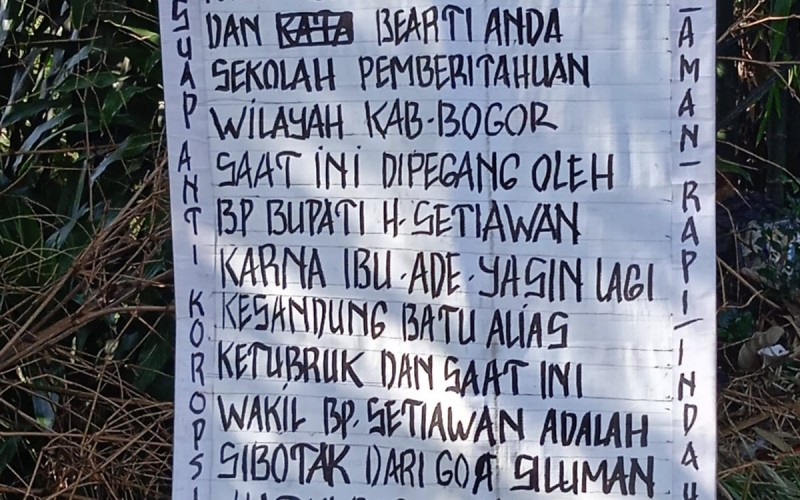 SUAP ANTI KOROPSI
DAN KATA BEARTI ANDA
SEKOLAH PEMBERITAHUAN
WILAYAH KAB-BOGOR
SAAT INI DIPEGANG OLEH
BP BUPATI H-SETIAWAN
KARNA IBU-ADE-YASIN LAGI
KESANDUNG BATU ALIAS
KETUBRUK DAN SAAT INI
WAKIL BP. SETIAWAN ADALAH
SIBOTAK DARI GOA SILUMAN
AMAN-RAPI-INDAH